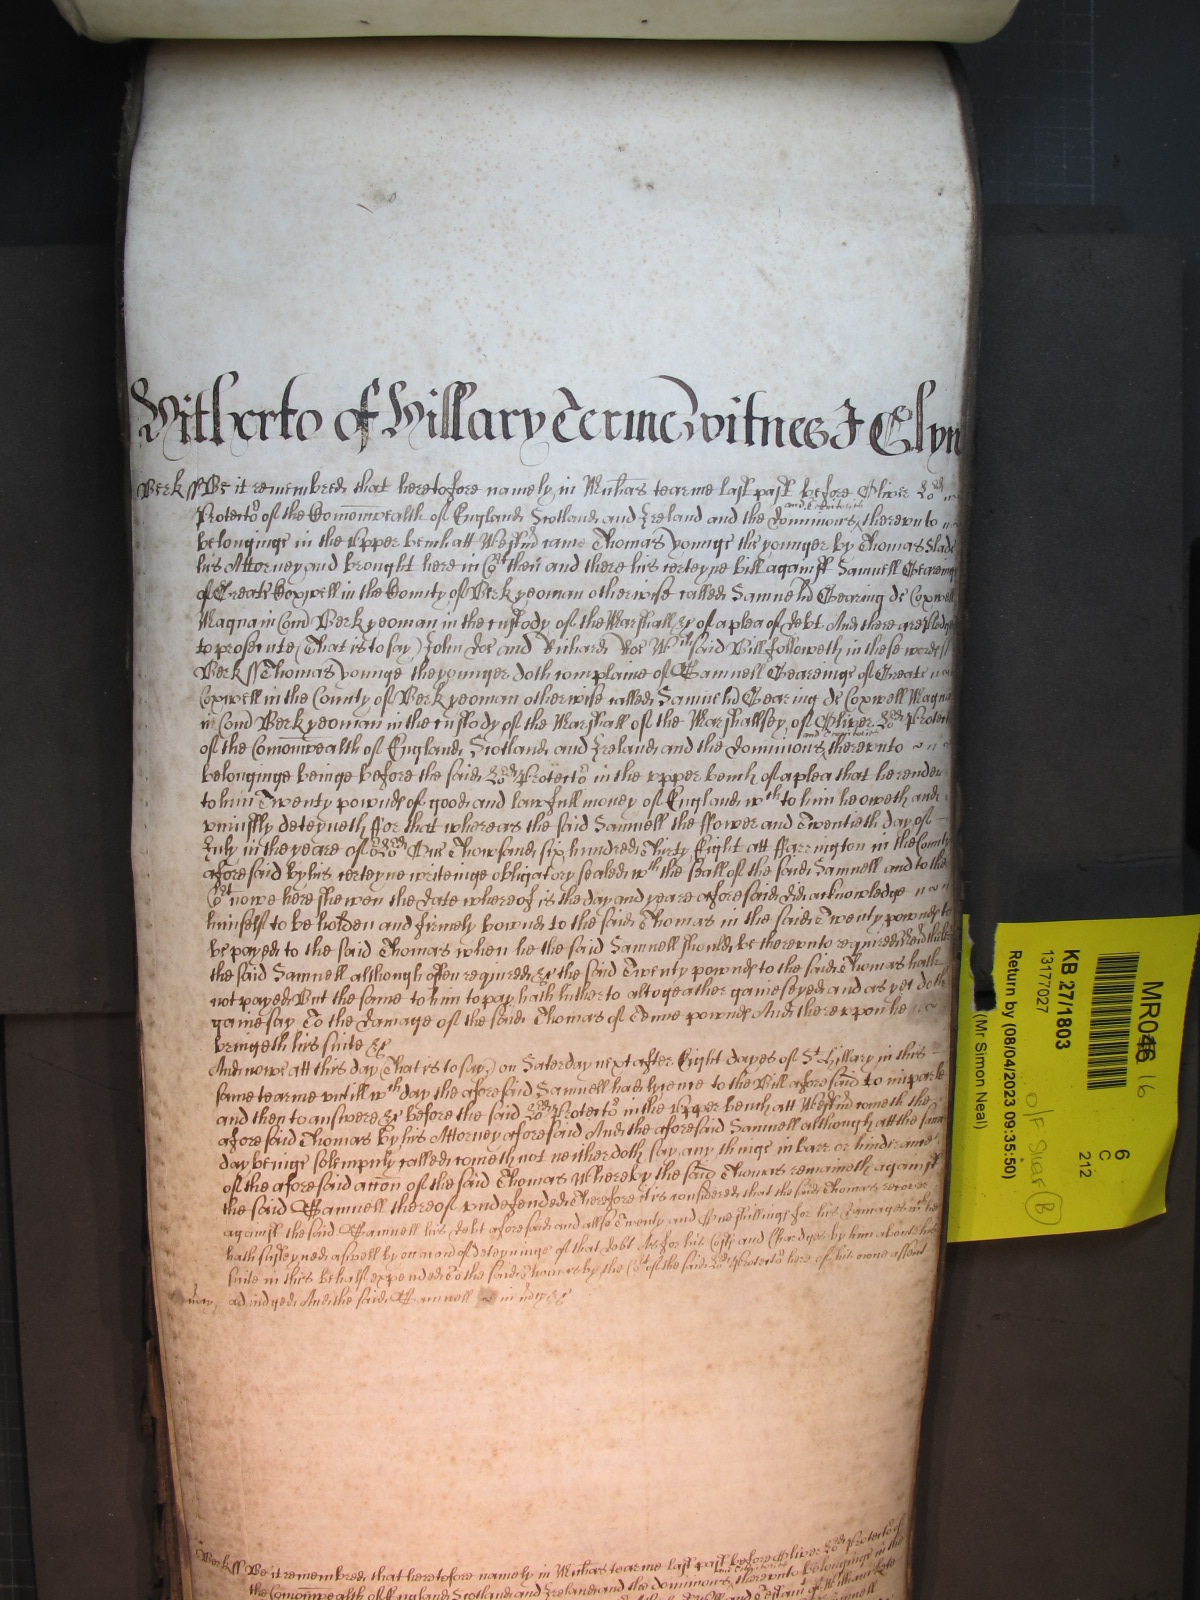 Hitherto of Hillary Terme witnes J Glyn
Berk ss Be it remembred that heretofore namely in Mich̃as tearme last past before Oliver Lo:rd
and Territories
Protector of the Com̃onwealth of England Scotland and Ireland and the dominions thereunto
belonginge in the Upper bench att Westm̃ came Thomas Younge the younger by Thomas Slade
his Attorney and brought here in Cort then and there his certeyne bill against Samuell Gearing
of Greate Coxwell in the County of Berk yeoman otherwise called Samuel Gearing de Coxwell
Magna in Com̃ Berk yeoman in the custody of the Marshall &c of a plea of debt And there are pledges
to prosecute (That is to say) John Doe and Richard Roe Wch said Bill followeth in these words ss
Berk ss Thomas Younge the younger doth complaine of Samuell Gearinge of Greate
Coxwell in the County of Berk yeoman otherwise called Samuel Gearing de Coxwell Magna
in Com̃ Berk yeoman in the custody of the Marshall of the Marshallsey of Oliver Lo:rd Protector
and Territories
of the Com̃onwealth of England Scotland and Ireland and the dominions thereunto
belonginge beinge before the said Lo:rd Protector in the upper bench of a plea that he render
to him Twenty pownds of good and lawfull money of England wch to him he oweth and
uniustly deteyneth ffor that whereas the said Samuell the ffower and Twentieth day of
July in the yeare of or Lord One Thowsand six hundred Thirty Eight att ffarrington in the County
aforesaid by his certeyne writeinge obligatory sealed wth the Seall of the said Samuell and to the
Cort nowe here shewen the date whereof is the day and yeare aforesaid did acknowledge
himself to be holden and firmely bownd to the said Thomas in the said Twenty pownds to
be payed to the said Thomas when he the said Samuell should be thereunto required
the said Samuell although often required &c the said Twenty pownds to the said Thomas hath
not payed But the same to him to pay hath hitherto altogeather gainesayed and as yet doth
gainesay To the damage of the said Thomas of Tenne pownds And thereupon he
bringeth his suite &c
And nowe att this day (That is to say) on Saterday next after Eight dayes of St Hillary in this
same tearme untill wch day the aforesaid Samuell had lycence to the Bill aforesaid to imparle
and then to answere &c before the said Lo:rd Protector in the Upper bench att Westm̃ cometh the
aforesaid Thomas by his Attorney aforesaid And the aforesaid Samuell although att the same
day beinge solempnly called cometh not neither doth say any thinge in barr or hinderance
of the aforesaid acc̃on of the said Thomas Whereby the said Thomas remaineth against
the said Samuell thereof undefended Therefore it is considered that the said Thomas recover
against the said Samuell his debt aforesaid and allso Twenty and shillings for his damages wch he
hath susteyned aswell by occasion of deteyninge of that debt As for his Costs and Chardges by him about his
suite in this behalf expended To the said Thomas by the Cort of the said Lo:rd Protector here of his owne assent
adiudged And the said Samuell in mercy &c
Berk ss Be it remembred that heretofore namely in Mich̃as tearme last past before Oliver Lo:rd Protector of
the Com̃onwealth of England Scotland and Ireland and the dominions thereunto belonginge in the
MR046 16
KB 27/1803
13177027
Return by (08/04/2023 09:35:50)
(Mr Simon Neal)
6
C
212
O/F Shelf B